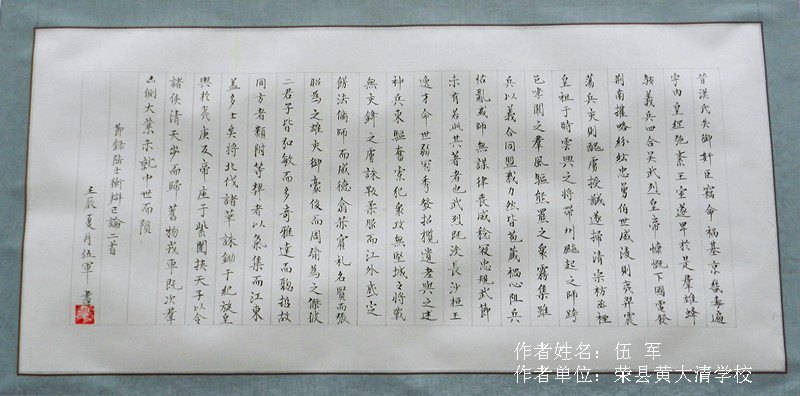 昔漢氏失御奸臣竊命禍基京畿毒遍
宇內皇綱弛紊王室遂卑於是羣雄蜂
駭義兵四合吳武烈皇帝慷慨下國電發
荊南權略紛紜忠勇伯世威稜則夷羿震
蕩兵交則醜虜授馘遂掃清宗祊蒸禋
皇祖于時雲興之將帶州飈起之師跨
邑哮闞之羣風驅熊羆之衆霧集雖
兵以義合同盟戮力然皆苞藏禍心阻兵
怙亂或師無謀律喪威稔寇忠規武節
未有若此其著者也武烈既沒長沙桓王
逸才命世弱冠秀發招攬遺老與之述
神兵東驅奮寡犯衆攻無堅城之將戰
無交鋒之虜誅叛柔服而江外厎定
飭法脩師而威德翕赫賓礼名賢而張
昭為之雄交御豪俊而周瑜為之傑彼
二君子皆弘敏而多奇雅達而聰哲故
同方者類附等契者以氣集而江東
蓋多士矣將北伐諸華誅鋤干紀旋皇
輿於夷庚反帝座于紫闥挾天子以令
諸侯清天步而歸舊物戎車既次羣
凶側大業未就中世而隕
節錄陸士衡辯亡論二首
壬辰夏月伍軍書
作者姓名：伍 军
作者单位：荣县黄大清学校